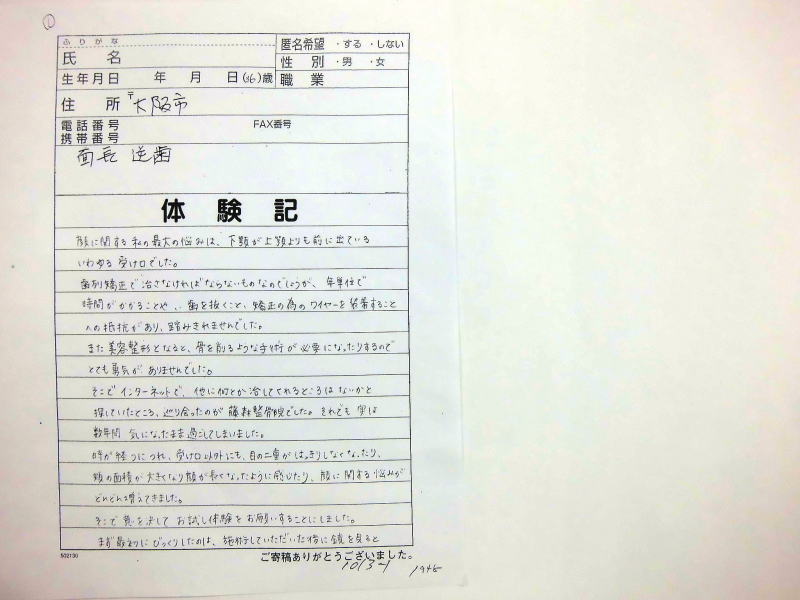 ①
ふりがな
氏 名
匿名希望 ・する ・しない
性 別 ・男 ・女
生年月日 年 月 日(36)歳
職 業
住 所 〒大阪市
電話番号 FAX番号
携帯番号
面長 逆歯
体験記
顔に関する私の最大の悩みは、下顎が上顎よりも前に出ている
いわゆる受け口でした。
歯列矯正で治さなければならないものなのでしょうが、年単位で
時間がかかることや、歯を抜くこと、矯正の為のワイヤーを装着すること
への抵抗があり、踏みきれませんでした。
また美容整形となると、骨を削るような手術が必要になったりするので
とても勇気がありませんでした。
そこでインターネットで、他に何とか治してくれるところはないかと
探していたところ、巡り会ったのが藤森整骨院でした。それでも実は
数年間気になったまま過ごしてしまいました。
時が経つにつれ、受け口以外にも、目の二重がはっきりしなくなったり、
頬の面積が大きくなり顔が長くなったように感じたり、顔に関する悩みが
どんどん増えてきました。
そこで意を決してお試し体験をお願いすることにしました。
まず最初にびっくりしたのは、施術していただいた後に鏡を見ると
502130
ご寄稿ありがとうございました。
1013-1 1945